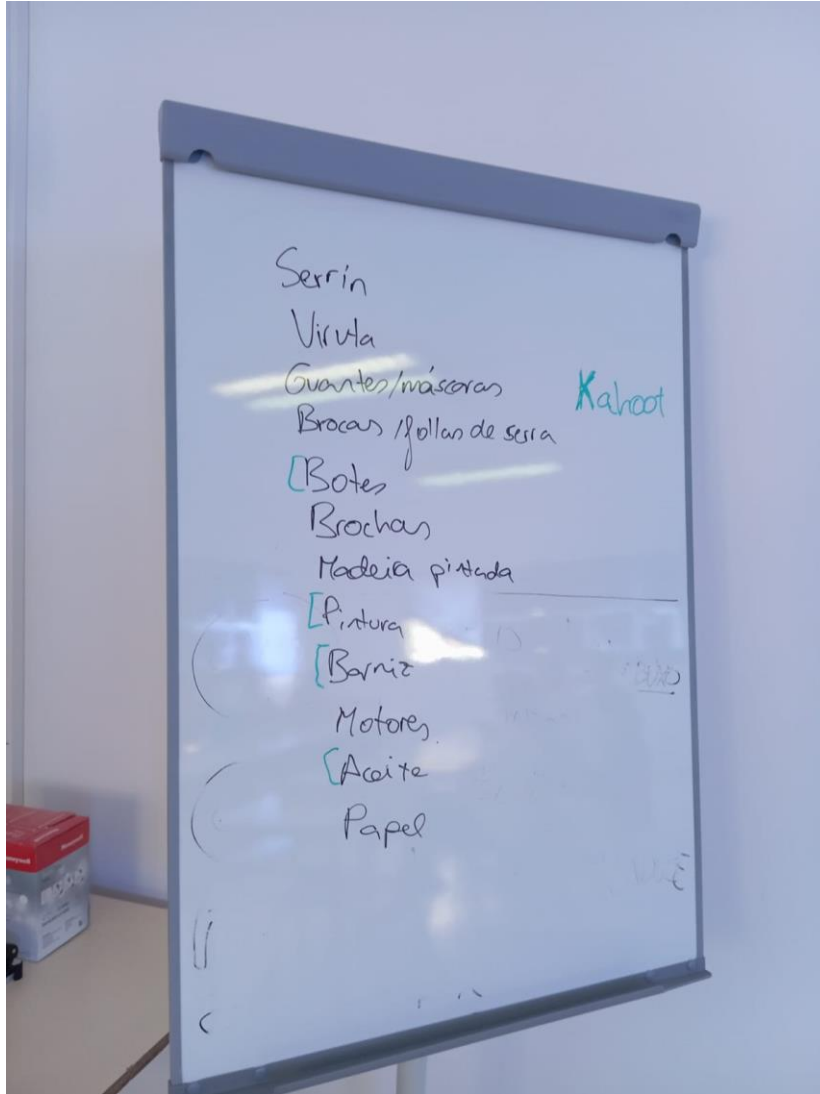 Serrín
Viruta
Guantes/máscaras
Kahoot
Brocas /follas de serra
[Botes
Brochas
Madeira pintada
[Pintura
[Barniz
Motores
[Aceite
Papel